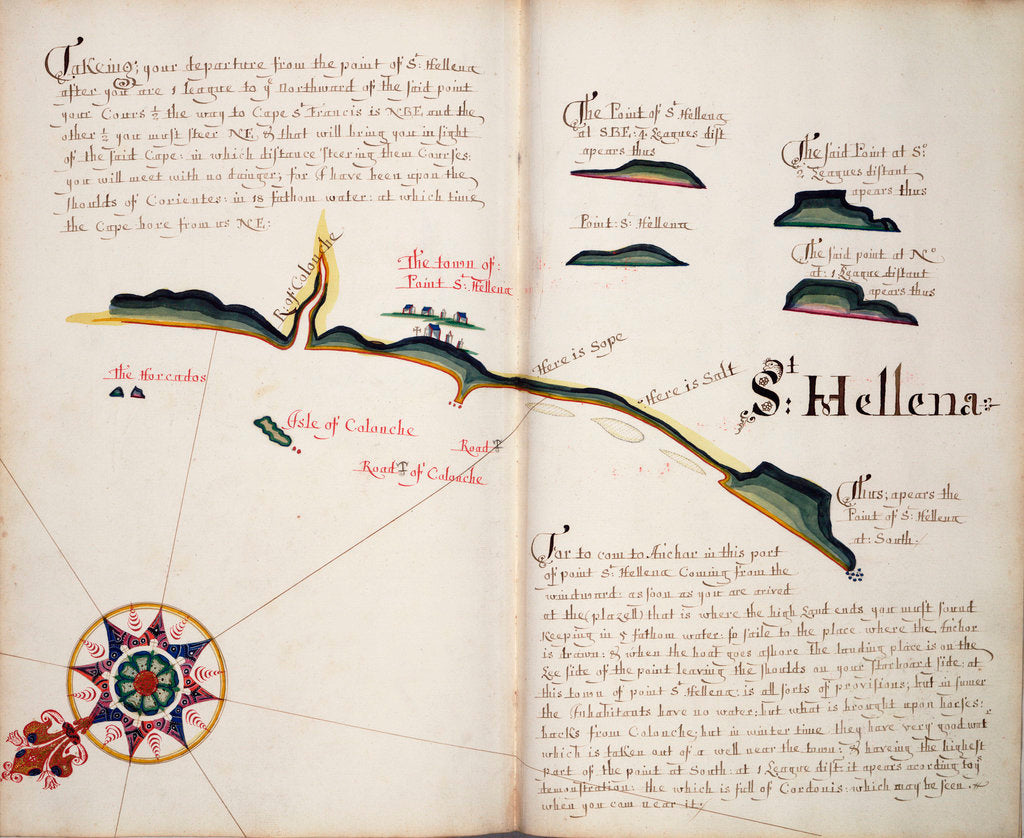 Takeing; your departure from the point of St: Hellena
after you are 1 league to ye Northward of the said point
your Cours ½ the way to Cape St Francis is NBE and the
other ½ you must steer NE, & that will bring you in sight
of the said Cape: in which distance steering them Courses:
you will meet with no dainger; for I have been upon the
shoulds of Corientes: in 18 fathom water: at which time
the Cape bore from us NE:
R: of Colonche
The town of:
Point St: Hellena
The Horcados
Isle of Colonche
Road
Road of Colonche
The Point of St Hellena
at SBE: 4 Leagues dist
apears thus
Point: St: Hellena
The said Point at So:
2 Leagues distant
apears thus
The said point at No
at: 1 League distant
apears thus
Here is Sope
Here is Salt
St: Hellena
Thus; apears the
Point of S: Hellena
at: South:
For to com to Anchar in this port
of point St: Hellena Coming from the
windward: as soon as you are arived
at the (plazell) that is where the high Land ends you must sound
keeping in 5 fathom water: so saile to the place where the Anchor
is drawn: & when the boat goes ashore The landing place is on the
Lee side of the point leaving the shoulds on your starboard side: at
this town of point St Hellena: is all sorts of provisions; but in sumer
the Inhabitants have no water: but what is brought upon horses:
backs from Colonche; but in winter time they have very good wat
which is taken out of a well near the town: & haveing the highest
part of the point at South: at 1 League dist: it apears acording to ye
demonstration: the which is full of Cordonis: which may be seen
when you com near it: